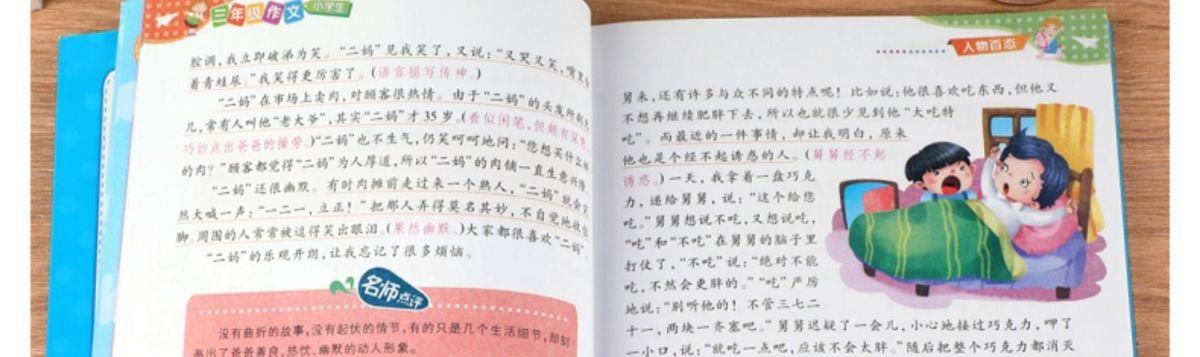 三年级作文
小学生
腔调，我立即破涕为笑。“二妈”见我笑了，又说：“又哭又笑，嘴里
着青蛙尿。”我笑得更厉害了。(语言描写传神。)
“二妈”在市场上卖肉，对顾客很热情。由于“二妈”的头发所剩无
几，常有人叫他“老大爷”，其实“二妈”才35岁。(看似闲笔，但颇有深意，
巧妙点出爸爸的操劳。)“二妈”也不生气，仍笑呵呵地问：“您想买什么样
的肉？”顾客都觉得“二妈”为人厚道，所以“二妈”的肉铺一直生意兴隆。
“二妈”还很幽默。有时肉摊前走过来一个熟人，“二妈”就会突
然大喊一声：“一二一，立正！”把那人弄得莫名其妙，不自觉地收住
脚。周围的人常常被逗得笑出眼泪。(果然幽默。)大家都很喜欢“二妈”。
“二妈”的乐观开朗，让我忘记了很多烦恼。
名师点评
没有曲折的故事，没有起伏的情节，有的只是几个生活细节，却刻
画出了爸爸善良、热忱、幽默的动人形象。
人物百态
舅来，还有许多与众不同的特点呢！比如说：他很喜欢吃东西，但他又
不想再继续肥胖下去，所以也就很少见到他“大吃特
吃”。而最近的一件事情，却让我明白，原来
他也是个经不起诱惑的人。(舅舅经不起
诱惑。)一天，我拿着一盘巧克
力，递给舅舅，说：“这个给您
吃。”舅舅想说不吃，又想说吃，
“吃”和“不吃”在舅舅的脑子里
打仗了，“不吃”说：“绝对不能
吃，不然会更胖的。”“吃”严厉
地说：“别听他的！不管三七二
十一，两块一齐塞吧。”舅舅迟疑了一会儿，小心地接过巧克力，呷了
一小口，说：“就吃一点吧，应该不会太胖。”随后把整个巧克力都消灭